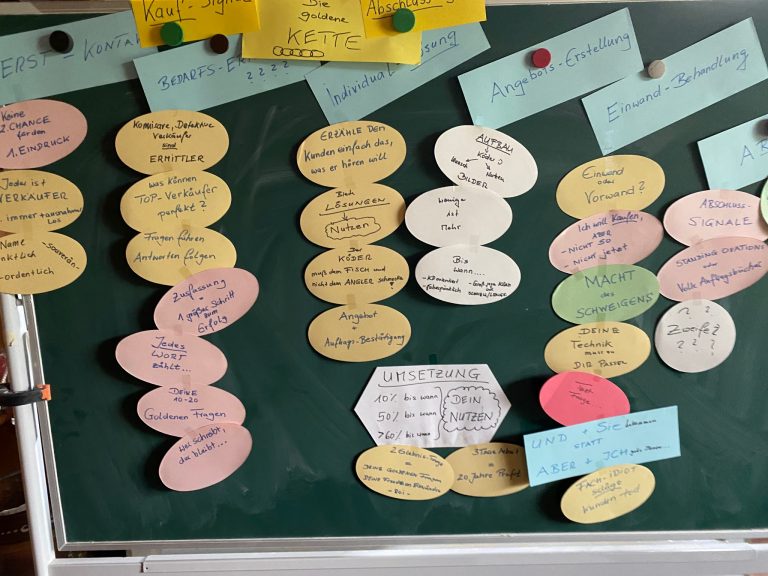 Kauf-
Die
goldene
KETTE
ERST-KONTA
BEDARFS-
? ? ? ?
Individual
Angebots-Erstellung
Einwand-Behandlung
A B
Keine
2. CHANCE
für den
1. EINDRUCK
Jeder ist
VERKÄUFER
immer
los
Name
nktlich
ordentlich
Souverän-
Kommissare, Detektive
Verkäufer
sind
ERMITTLER
was können
TOP-Verkäufer
perfekt?
Fragen führen
Antworten folgen
Zusfassung
=
1 großer Schritt
zum
Erfolg
Jedes
WORT
zählt...
DEINE
10-20
Goldenen Fragen
Wer schreibt,
der bleibt...
ERZÄHLE DEM
Kunden einfach das,
was er hören will
Biete
LÖSUNGEN
Nutzen
Der
KÖDER
muß dem FISCH und
nicht dem ANGLER schmecken
Angebot
+
Auftrags-Bestätigung
AUFBAU
Köder
BILDER
wenige
ist
Mehr
Bis
wann....
UMSETZUNG
10% bis wann
50% bis wann
>60% bis wann
DEIN
NUTZEN
2 Erlebnis-Tage
=
20 Jahre Profit
Einwand
oder
Vorwand?
Ich will Kaufen,
ABER
-NICHT SO
-Nicht jetzt
MACHT
des
SCHWEIGENS
DEINE
Technik
muss zu
DIR PASSEN
Frage...
UND + Sie
STATT
ABER + ICH
FACH-IDIOT
schlägt
Kunden tod
ABSCHLUSS-
SIGNALE
STANDING OVATIONS
oder
Volle Auftragsbücher
? ?
Zweifel
? ? ?